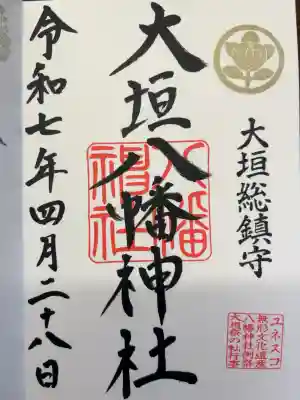 大垣総鎮守
大垣八幡神社
八幡
神社
令和七年四月二十八日
ユネスコ
無形文化遺産
八幡神社例祭